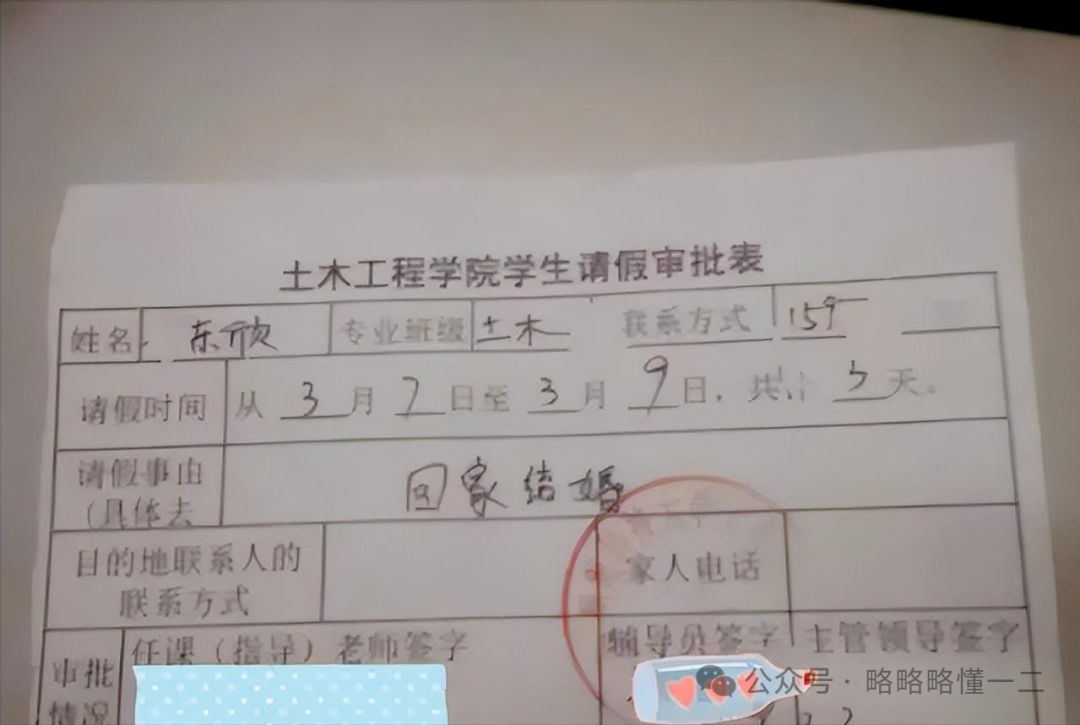 土木工程学院学生请假审批表
姓名 东欣 专业班级 土木 联系方式 159
请假时间 从 3 月 7 日至 3 月 9 日，共计 3 天。
请假事由
（具体去
回家结婚
目的地联系人的
联系方式
家人电话
审批
情况
任课（指导）老师签字
辅导员签字
主管领导签字
公众号·略略略懂一二